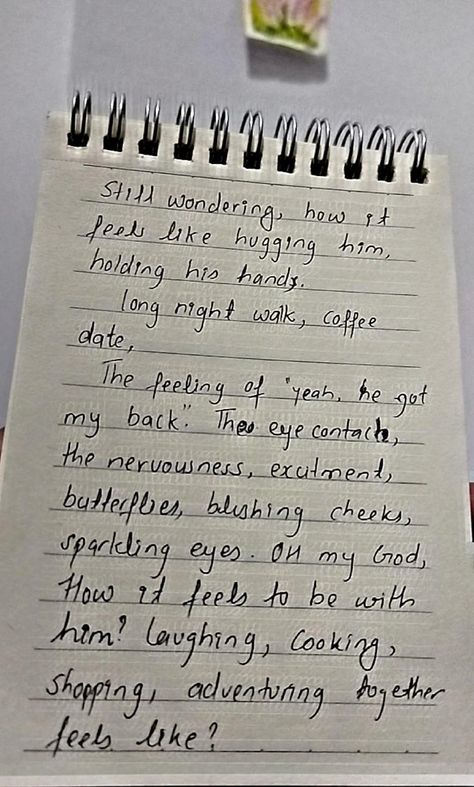 Still wondering, how it
feels like hugging him,
holding his hands.
long night walk, coffee
date,
The feeling of "yeah, he got
my back". The eye contach,
the nervousness, exutment,
butterflies, blushing cheeks,
sparkling eyes. OH my God,
How it feels to be with
him? laughing, cooking,
shopping, adventuring together
feels like?